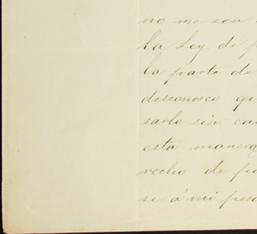 no me son
la Ley de p
la parte de
desconosco qu
sarlo sin cau
esta manera
recho de
se á mi pesa